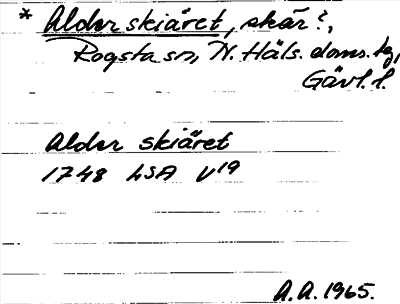 * Alderskiäret, skär?,
Rogsta sn, N. Häls. doms. tg,
Gävl. l.
Alder skiäret
1748 LSA V19
A.A. 1965.